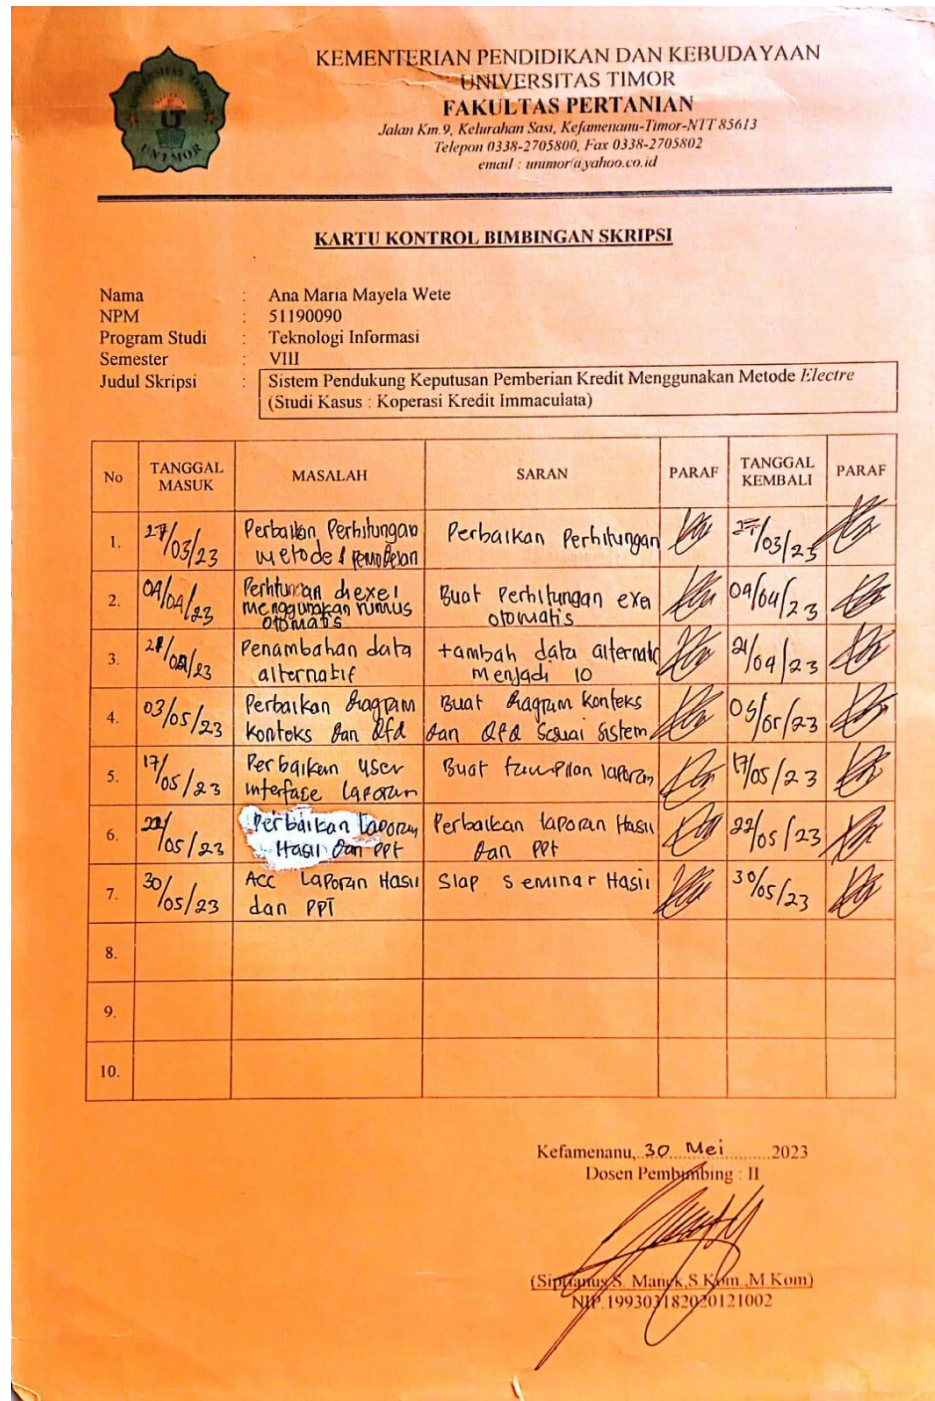 KEMENTERIAN PENDIDIKAN DAN KEBUDAYAAN
UNIVERSITAS TIMOR
FAKULTAS PERTANIAN
Jalan Km.9, Kelurahan Sasi, Kefamenanu-Timor-NTT 85613
Telepon 0338-2705800, Fax 0338-2705802
email : unimor@yahoo.co.id
UNIVERSITAS TIMOR
UT
UNIMOR
KARTU KONTROL BIMBINGAN SKRIPSI
Nama : Ana Maria Mayela Wete
NPM : 51190090
Program Studi : Teknologi Informasi
Semester : VIII
Judul Skripsi : Sistem Pendukung Keputusan Pemberian Kredit Menggunakan Metode Electre
(Studi Kasus : Koperasi Kredit Immaculata)
No TANGGAL MASUK MASALAH SARAN PARAF TANGGAL KEMBALI PARAF
1. 27/03/23 Perbaikan Perhitungan metode & Perbaikan Perhitungan 27/03/23
2. 04/04/23 Perhitungan diexel menggunakan rumus otomatis Buat Perhitungan exel otomatis 04/04/23
3. 21/04/23 Penambahan data alternatif tambah data alternatif menjadi 10 21/04/23
4. 03/05/23 Perbaikan diagram konteks dan dfd Buat diagram konteks dan dfd sesuai sistem /05/23
5. 17/05/23 Perbaikan user interface laporan Buat tampilan laporan 17/05/23
6. 22/05/23 Perbaikan laporan Hasil dan PPt Perbaikan laporan Hasil dan PPt 22/05/23
7. 30/05/23 ACC Laporan Hasil dan PPT Siap Seminar Hasil 30/05/23
8.
9.
10.
Kefamenanu, 30 Mei 2023
Dosen Pembimbing : II
(Siprianus S. Manek,S.Kom.,M.Kom)
NIP.199303182020121002